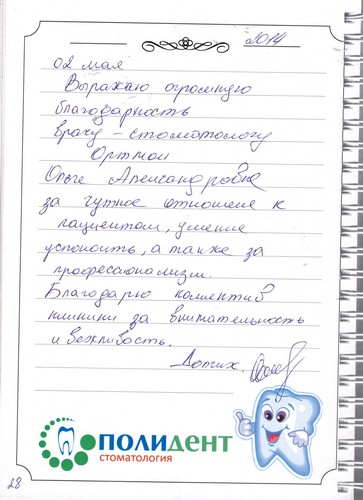 2014
02 мая
Выражаю огромную
благодарность
врачу – стоматологу
Ортман
Ольге Александровне
за чуткое отношение к
пациентам, умение
успокоить, а также за
профессионализм.
Благодарю коллектив
клиники за внимательность
и вежливость.
Долгих.
ПОЛИДЕНТ
СТОМАТОЛОГИЯ
28